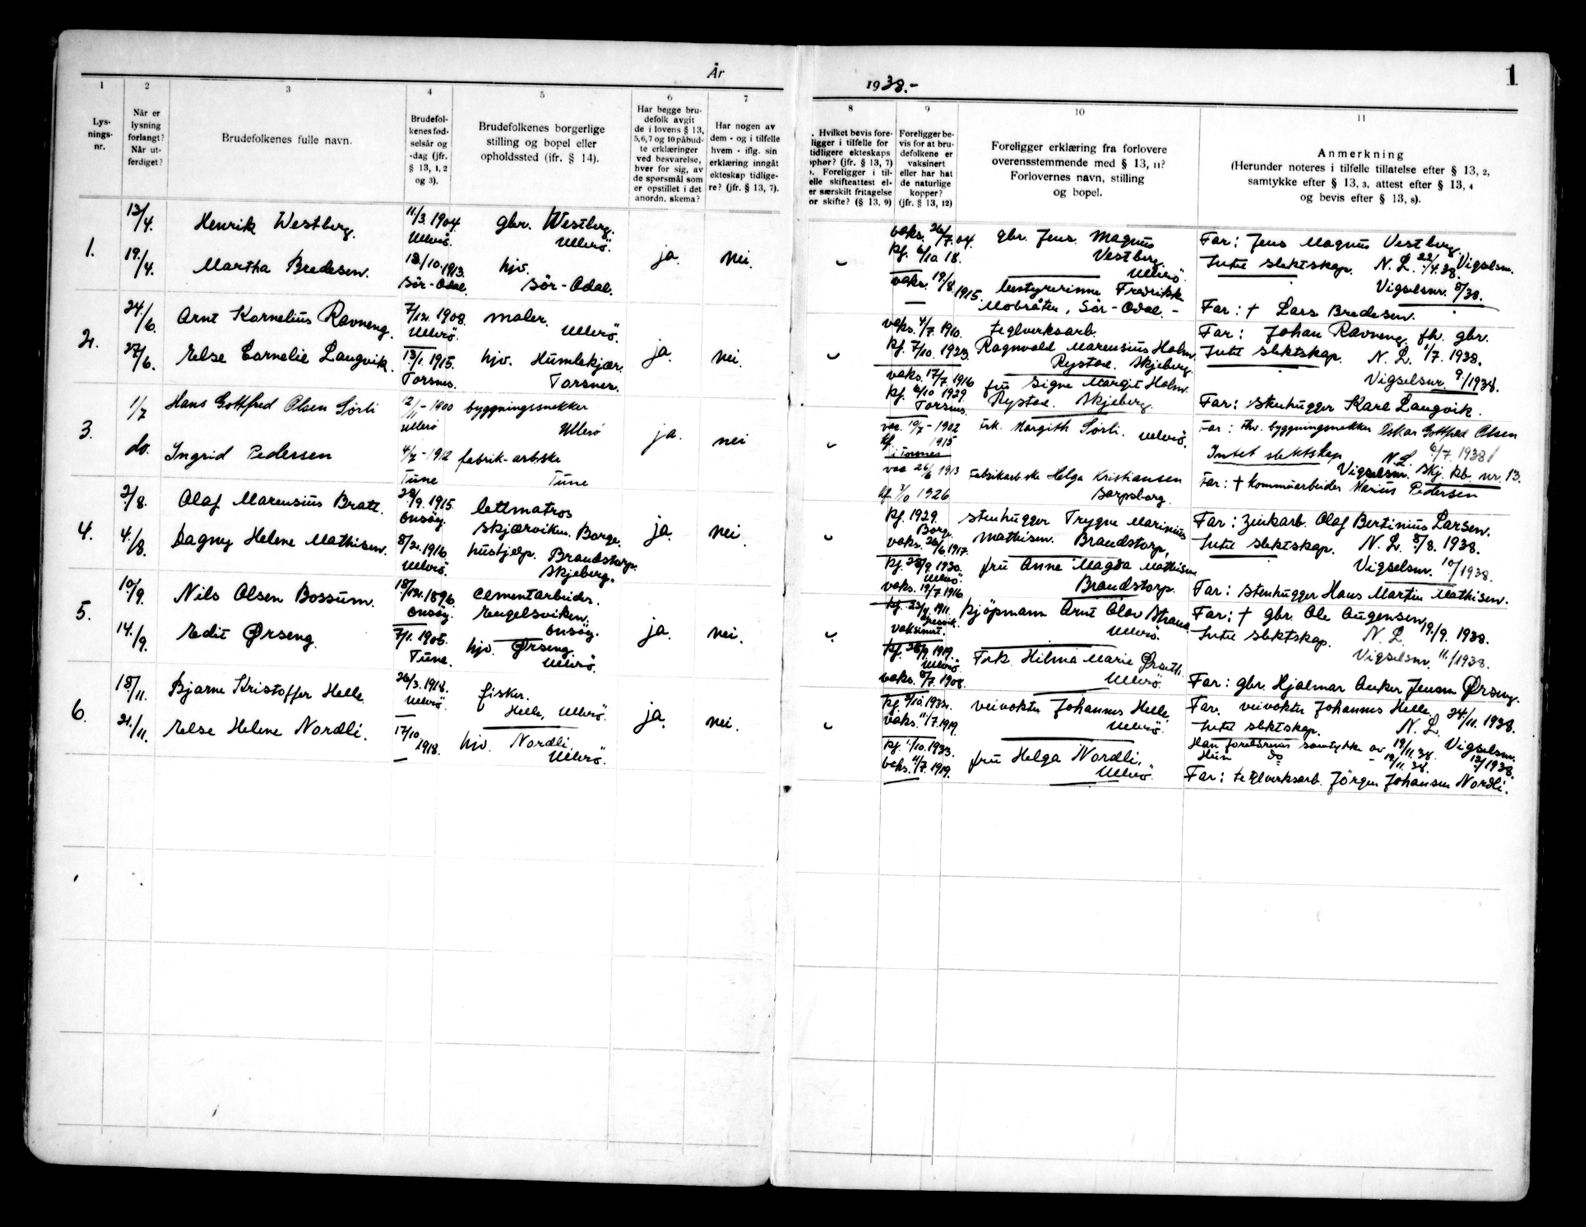 År 1938.-
1
1
2
3
4
5
6
7
8
9
10
11
Lys-
nings-
nr.
Når er
lysning
forlangt?
Når ut-
ferdiget?
Brudefolkenes fulle navn.
Brudefol-
kenes fød-
selsår og
-dag (jfr.
§ 13, 1, 2
og 3).
Brudefolkenes borgerlige
stilling og bopel eller
opholdssted (ifr. § 14).
Har begge bru-
defolk avgit
de i lovens § 13,
5,6,7 og 10 påbud-
te erklæringer
ved besvarelse,
hver for sig, av
de spørsmål som
er opstillet i det
anordn. skema?
Har nogen av
dem - og i tilfelle
hvem - iflg. sin
erklæring inngåt
ekteskap tidlige-
re? (jfr. § 13, 7).
. Hvilket bevis fore-
ligger i tilfelle for
tidligere ekteskaps
ophør? (jfr. § 13, 7)
. Foreligger i til-
elle skifteattest el-
er særskilt fritagelse
or skifte? (§ 13, 9)
Foreligger be-
vis for at bru-
defolkene er
vaksinert
eller har hat
de naturlige
kopper?
(jfr. § 13, 12)
Foreligger erklæring fra forlovere
overensstemmende med § 13, 11?
Forlovernes navn, stilling
og bopel.
Anmerkning
(Herunder noteres i tilfelle tillatelse efter § 13, 2,
samtykke efter § 13, 3, attest efter § 13, 4
og bevis efter § 13, 8).
1.
13/4.
19./4.
Henrik Westberg.
Martha Bredesen.
11/3 1904.
Ullerö.
18/10 1913.
Sör-Odal.
gbr. Westberg.
Ullerö.
hjv.
Sör-Odal.
ja.
nei.
vaks. 26/7 04.
kf. 6/10 18.
vaks. 19/8 1915
gbr. Jens Magnus
Vestberg,
Ullerö.
bestyrerinne Fredrikke
Mobråten, Sör-Odal. -
Far: Jens Magnus Vestberg.
Intet slektskap. N. L. 22/4.38. Vigselsnr.
Vigselsnr. 8/38.
Far: † Lars Bredesen.
2.
24/6.
27/6.
Arnt Kornelius Ravneng.
Else Cornelie Langvik.
7/12. 1908.
Ullerö.
13/1 1915.
Torsnes.
maler.
Ullerö.
hjv. Humlekjær.
Torsnes.
ja.
nei.
vaks. 4/7. 1910.
kf. 7/10. 1923.
vaks. 17/7 1916
kf. 6/10 1929
Torsnes.
teglverksarb.
Ragnvald Marensius Holm,
Rystad, Skjeberg.
fru Signe Margit Holm.
Rystad. Skjeberg.
Far: Johan Ravneng, fh. gbr.
Intet slektskap. N. L. 1/7. 1938.
Vigselsnr. 9/1938.
Far: stenhugger Karl Langvik.
3.
1/7
do.
Hans Gottfred Olsen Sørli
Ingrid Pedersen
2/11 - 1900
Ullerö
4/7 - 1912
Tune
byggningssnekker
Ullerö
fabrik-arb.ske
Tune
ja.
nei
1915
vac 26/6 1913
kf. 3/10 1926
frk. Margith Sørli. Ullerö.
Fabrikarb.ske Helga Kristiansen
Sarpsborg.
Far: fhv. byggningssnekker Oskar Gottfred Olsen
Intet slektskap N.L. 6/7. 1938
Vigselsnr. Skj. kb. nr. 13.
Far: † kommunearbeider Marius Pedersen
4.
2/8.
4/8.
Olaf Marensius Bratt.
Dagny Helene Mathisen.
28/9. 1915
Onsöy.
8/2. 1916
Ullerö.
lettmatros
Skjærviken. Borge.
hushjelp. Brandstorp.
Skjeberg.
ja.
nei.
kf. 1929.
Borge
vaks. 26/6 1917.
kf. 28/9 1930.
Ullerö.
vaks. 19/7 1916
stenhugger Trygve Marinius
Mathisen. Brandstorp,
fru Anne Magda Mathisen
Brandstorp.
Far: zinkarb. Olaf Bertinius Larsen.
Intet slektskap. N. L. 8/8. 1938.
Vigselsnr. 10/1938.
Far: stenhugger Hans Martin Mathisen.
5.
10/9.
14./9.
Nils Olsen Bossum.
Edit Ørseng.
18/12. 1896.
Onsöy.
7/1. 1905.
Tune.
cementarbeider.
Engelsviken,
Onsöy.
hjv. Ørseng.
Ullerö.
ja.
nei.
kf. 23/4 1911.
vaksinert.
kf. 28/9 1919.
Ullerö.
vaks. 8/7. 1908.
kjöpmann Arnt Olav Strand
Ullerö.
Frk. Hilma Marie
Ullerö.
Far: † gbr. Ole Augensen
Intet slektskap. N. L. 19/9. 1938.
Vigselsnr. 11./1938.
Far: gbr. Hjalmar Anker Jensen Ørseng.
6.
18/11.
21./11.
Bjarne Kristoffer Helle
Else Helene Nordli.
26/3. 1918.
Ullerö.
17/10. 1918.
fisker.
Helle, Ullerö.
hjv. Nordli,
Ullerö.
ja.
nei.
kf. 2/10. 1932.
vaks. 11/7. 1919.
kf. 1/10. 1933.
vaks. 11/7. 1919.
veivokter Johannes Helle,
Ullerö.
fru Helga Nordli,
Ullerö.
Far. veivokter Johannes Helle.
Intet slektskap. N. L. 24/11. 1938.
Han foreldrenes samtykke av 19/11.38. Vigselsnr.
Hun do - 19/11. 38. 12/1938.
Far: teglverksarb. Jörgen Johansen Nordli.